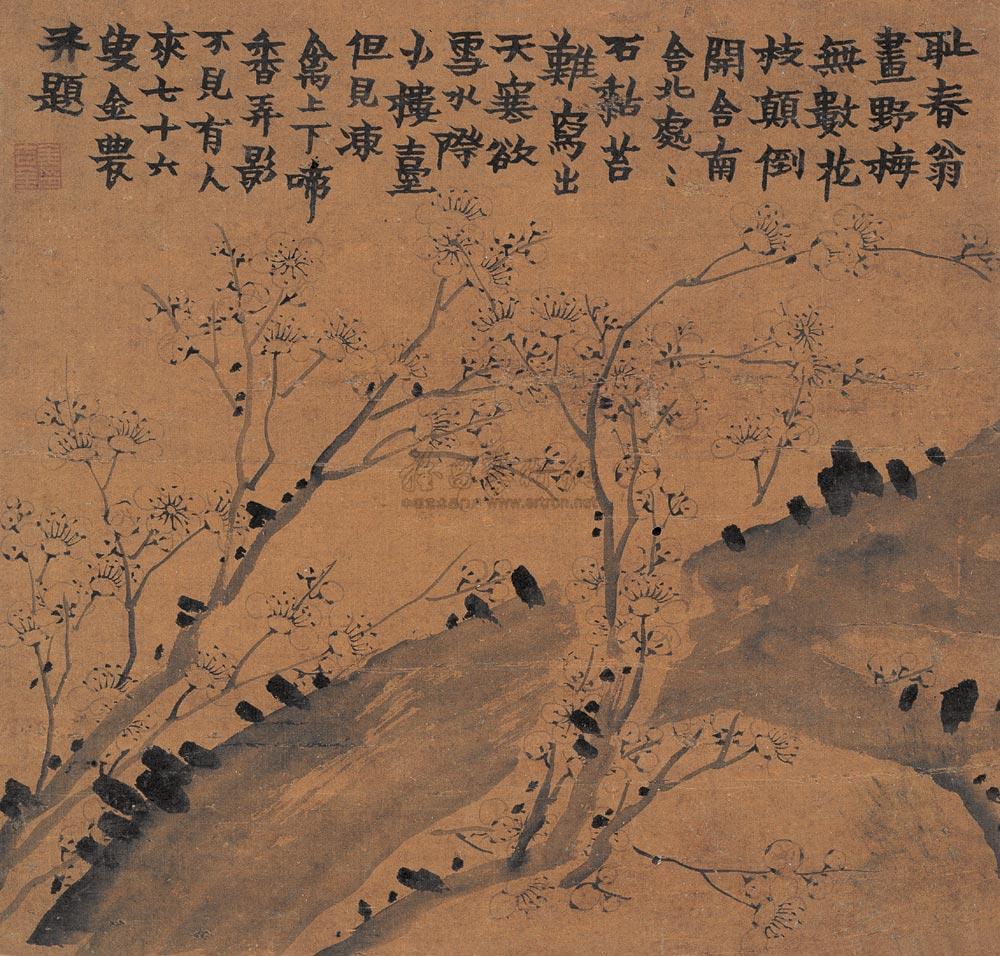 耻春翁
畫野梅
無數花
枝顛倒
開舍南
舍北處〻
石黏苔
難寫出
天寒欲
雪水際
小樓臺
但見凍
禽上下啼
香弄影
不見有人
來七十六
叟金農
并題
www.artron.net